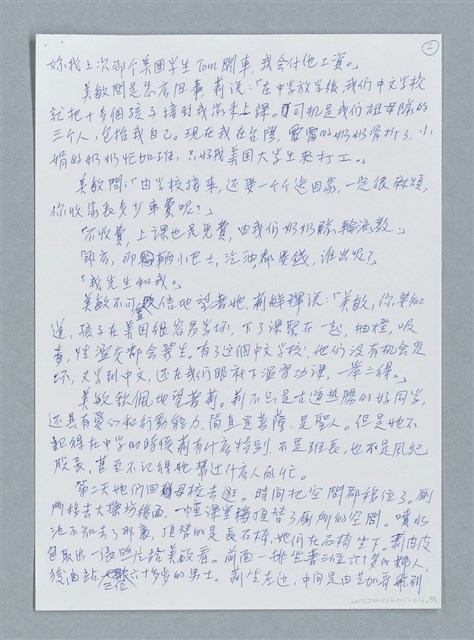 ②
妳找上次那个美國学生Tom開車,我会付他工資。
美敏問是怎么回事,莉說:「在中学放学後,我们中文学校
就把十多個孩子接到我家来上課。司机是我们祖母隊的
三个人,包括我自己。現在我在台灣,雷雷的奶奶骨折了,小
娟的奶奶忙加班,只好找美国大学生来打工。」
美敏問:「由学校接車,還要一个个送回家,一定很麻煩,
你收家長多少車費呢?」
「不收費,上課也是免費,由我们奶奶隊輪流教。」
「那么,那輛小巴士,汽油都要錢,誰出呢?」
「我先生和我。」
美敏不可置信地望著她,莉解釋說:「美敏,你要知
道,孩子在美国很容易学坏,下了課聚在一起,抽煙,吸
毒,性濫交都会發生。有了这個中文学校,他们没有机会变
坏,又学到中文,还在我们眼底下温習功课,一举二得。」
美敏钦佩地望著莉。莉不只是古道热腸的好同学,
还具有爱心和行動能力,简直是菩薩,是聖人。但是她不
記得在中学的時候莉有什么特别,不是班長,也不是風紀
股長,甚至不记得她幫过什么人的忙。
第二天她们回母校去逛。時间把空間都移位了。厠
所移去大操场後面,一幢課室樓頂替了厠所的空間。噴水
池不知去了那裏,頂替的是長石椅,她们在石椅坐下。莉由皮
包取出一張照片给美敏看。前面一排坐著三位六十多的婦人,
後面站三位六十多歲的男士。莉坐左边,中间是由芝加哥飛到